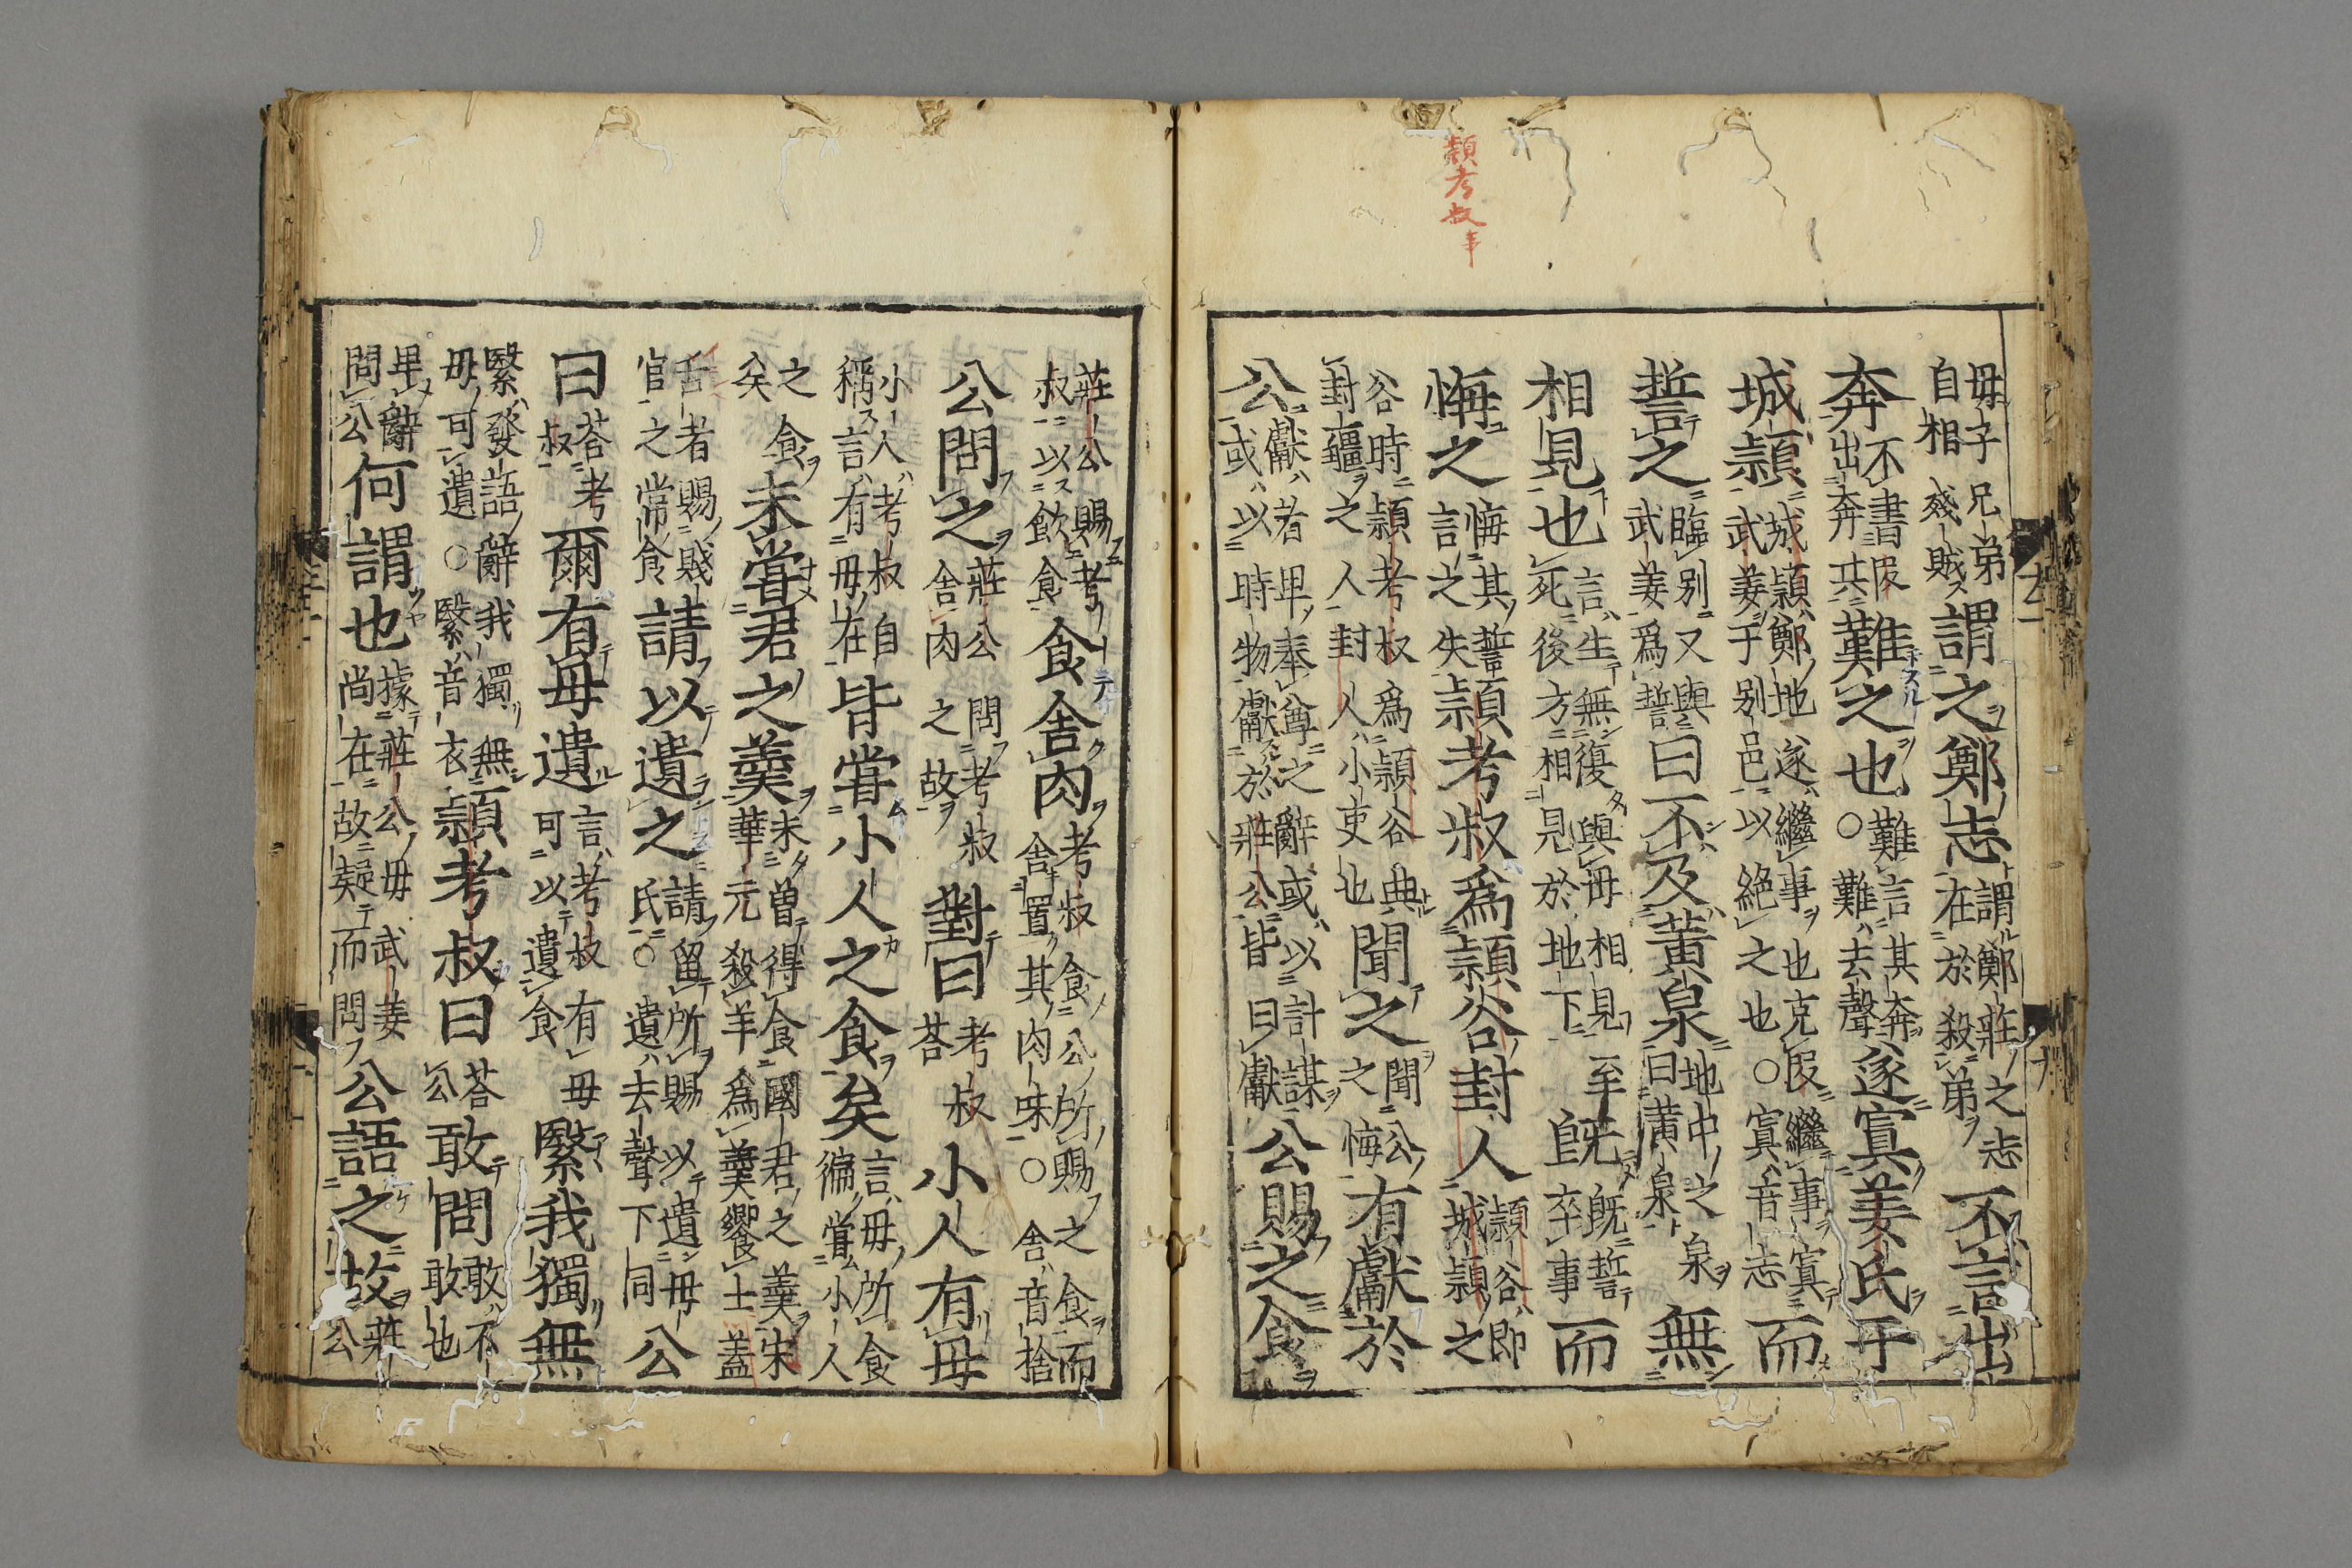 潁考叔事
母子兄弟自相殘賊謂之鄭志謂鄭莊之志在於殺弟不言出
奔不書段出奔共難之也難言其奔○難去聲遂寘姜氏于
城潁城潁鄭地遂繼事也克段繼事寘武姜于别邑以絶之也○寘音志而
誓之臨别又與武姜爲誓曰不及黃泉地中之泉曰黃泉無
相見也言生無復與母相見至死後方相見於地下既既誓卒事而
悔之悔其誓言之失潁考叔爲潁谷封人潁谷即城潁之
谷時潁考叔爲潁谷典封疆之人封人小吏也聞之聞公之悔有獻於
公獻者卑奉尊之辭或以計謀或以時物獻於莊公皆曰獻公賜之食
莊公賜考叔以飲食食舍肉考叔食公所賜之食而舍置其肉味○舍音捨
公問之莊公問考叔舍肉之故對曰考叔荅小人有母
小人考叔自稱言有母在皆嘗小人之食矣言母所食徧嘗小人
之食矣未嘗君之羹未曽得食國君之羹宋華元殺羊爲羹饗士蓋
古者賜賤官之常食請以遺之請留所賜以遺母氏○遺去聲下同公
曰荅考叔爾有母遺言考叔有母可以遺食繄我獨無
繄發語辭我獨無母可遺○繄音衣潁考叔曰荅公敢問敢不敢也
卑辭問公何謂也據莊公母武姜尚在故疑而問公語之故莊公